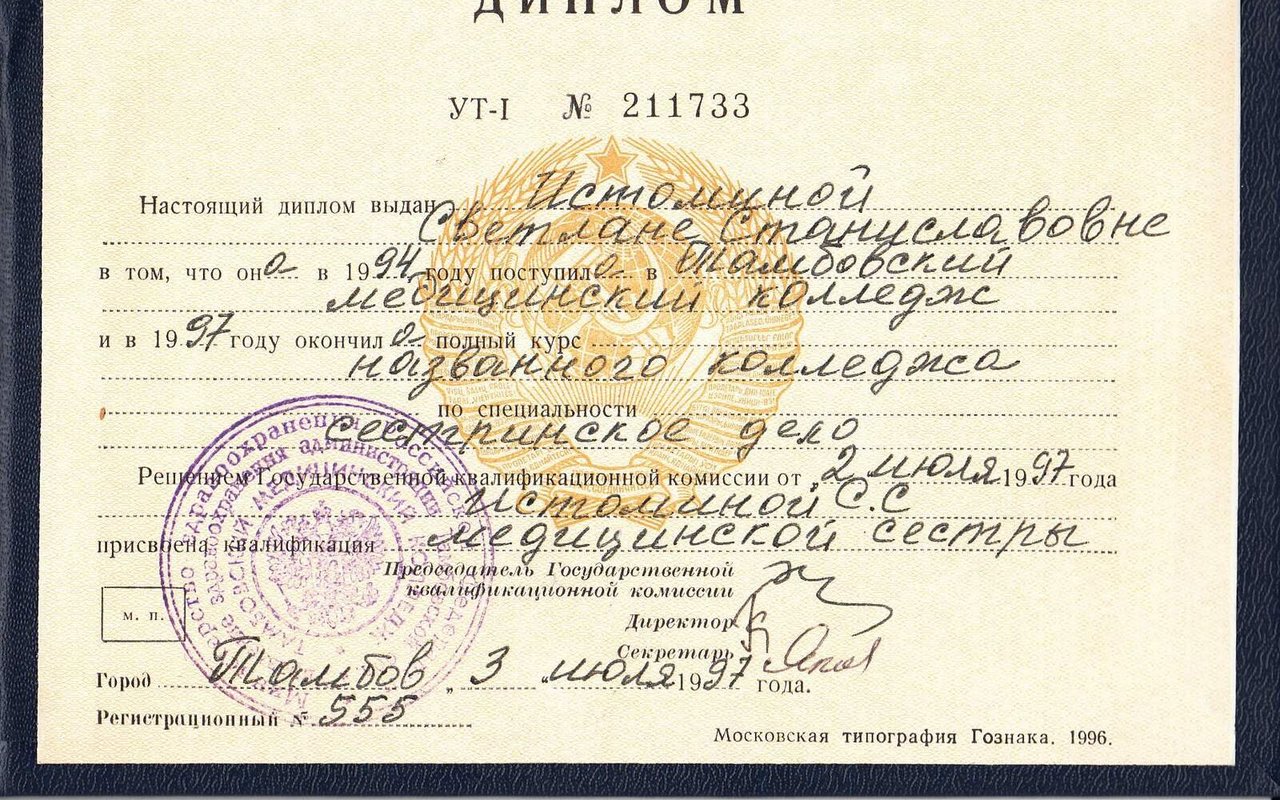 ДИПЛОМ
УТ-I № 211733
Настоящий диплом выдан Истоминой
Светлане Станиславовне
в том, что она в 1994 году поступила в Тамбовский
медицинский колледж
и в 1997 году окончила полный курс
названного колледжа
по специальности
сестринское дело
Решением Государственной квалификационной комиссии от „2 июля 1997 года
Истоминой С.С
присвоена квалификация медицинской сестры
Председатель Государственной
квалификационной комиссии
Директор
Секретарь
м. п.
Город Тамбов „3 „ июля 1997 года.
Регистрационный № 555
Московская типография Гознака. 1996.